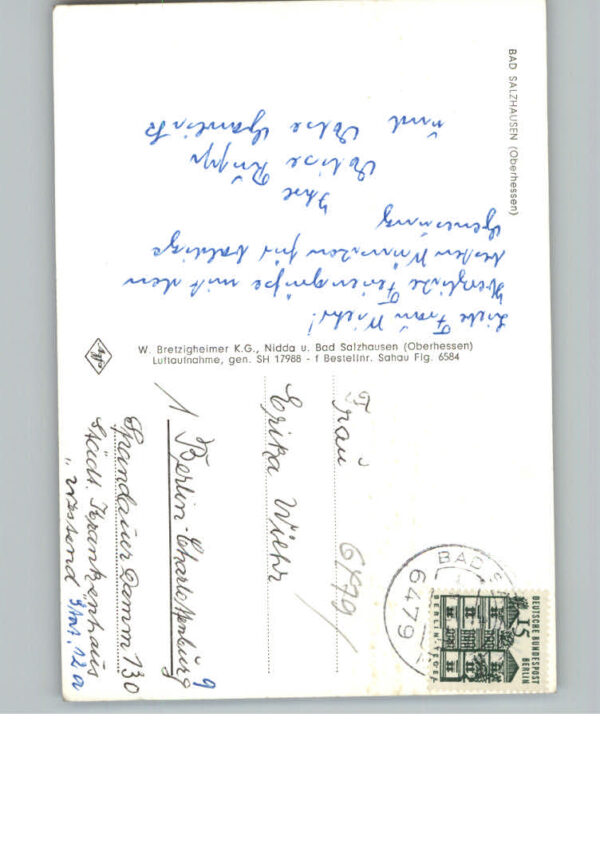 BAD SALZHAUSEN (Oberhessen)
Liebe Frau Wiehr!
Herzliche Feriengrüße mit den
besten Wünschen für baldige
Genesung
Ihre
Rupp
und
W. Bretzigheimer K.G., Nidda u. Bad Salzhausen (Oberhessen)
Luftaufnahme, gen. SH 17988 - f Bestellnr. Sahau Flg. 6584
Agfa
Frau
Erika Wiehr
1 Berlin-Charlottenburg 9
Spandauer Damm 130
Städt. Krankenhaus
„Westend" Stat. 12a
6479/
BAD
6479
15
DEUTSCHE BUNDESPOST
BERLIN
BERLIN-TEGEL